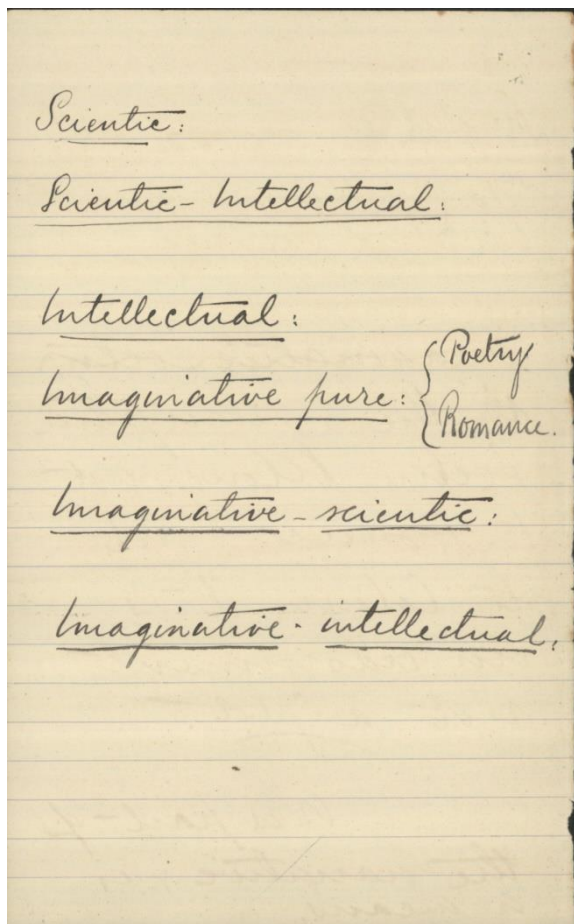 Scientic:
Scientic - Intellectual:
Intellectual:
Imaginative pure: { Poetry
Romance.
Imaginative - scientic:
Imaginative - intellectual.